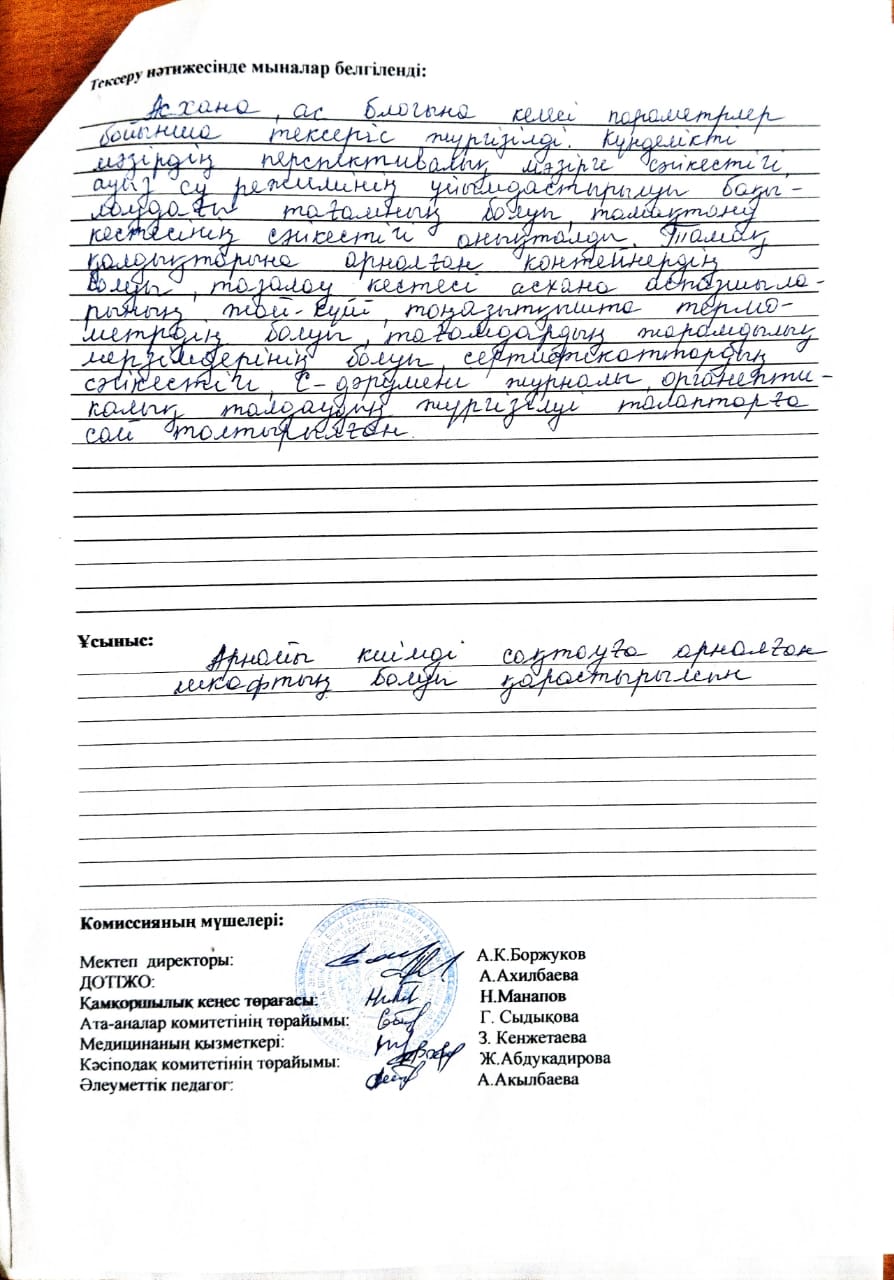 Тексеру нәтижесінде мыналар белгіленді:
Асхана, ас блогына келесі параметрлер
бойынша тексеріс жүргізілді. Күнделікті
мәзірдің перспективалық мәзірге сәйкестігі,
ауыз су режимінің ұйымдастырылуы бақы-
лаудағы тағамның болуы, тамақтану
кестесінің сәйкестігі анықталды. Тамақ
қалдықтарына арналған контейнердің
болуы, тазалау кестесі асхана аспазшыла-
рының жай-күйі, тоңазытқышта термо-
метрдің болуы, тағамдардың жарамдылық
мерзімдерінің болуы, сертификаттардың
сәйкестігі, С-дәрумені журналы, органепти-
калық талдаудың жүргізілуі талаптарға
сай толтырылған.
Ұсыныс:
Арнайы киімді сақтауға арналған
шкафтың болуы қарастырылсын
Комиссияның мүшелері:
Мектеп директоры: А.К.Боржуков
ДОТІЖО: А.Ахилбаева
Қамқоршылық кеңес төрағасы: Н.Манапов
Ата-аналар комитетінің төрайымы: Г. Сыдықова
Медицинаның қызметкері: З. Кенжетаева
Кәсіподақ комитетінің төрайымы: Ж.Абдукадирова
Әлеуметтік педагог: А.Акылбаева